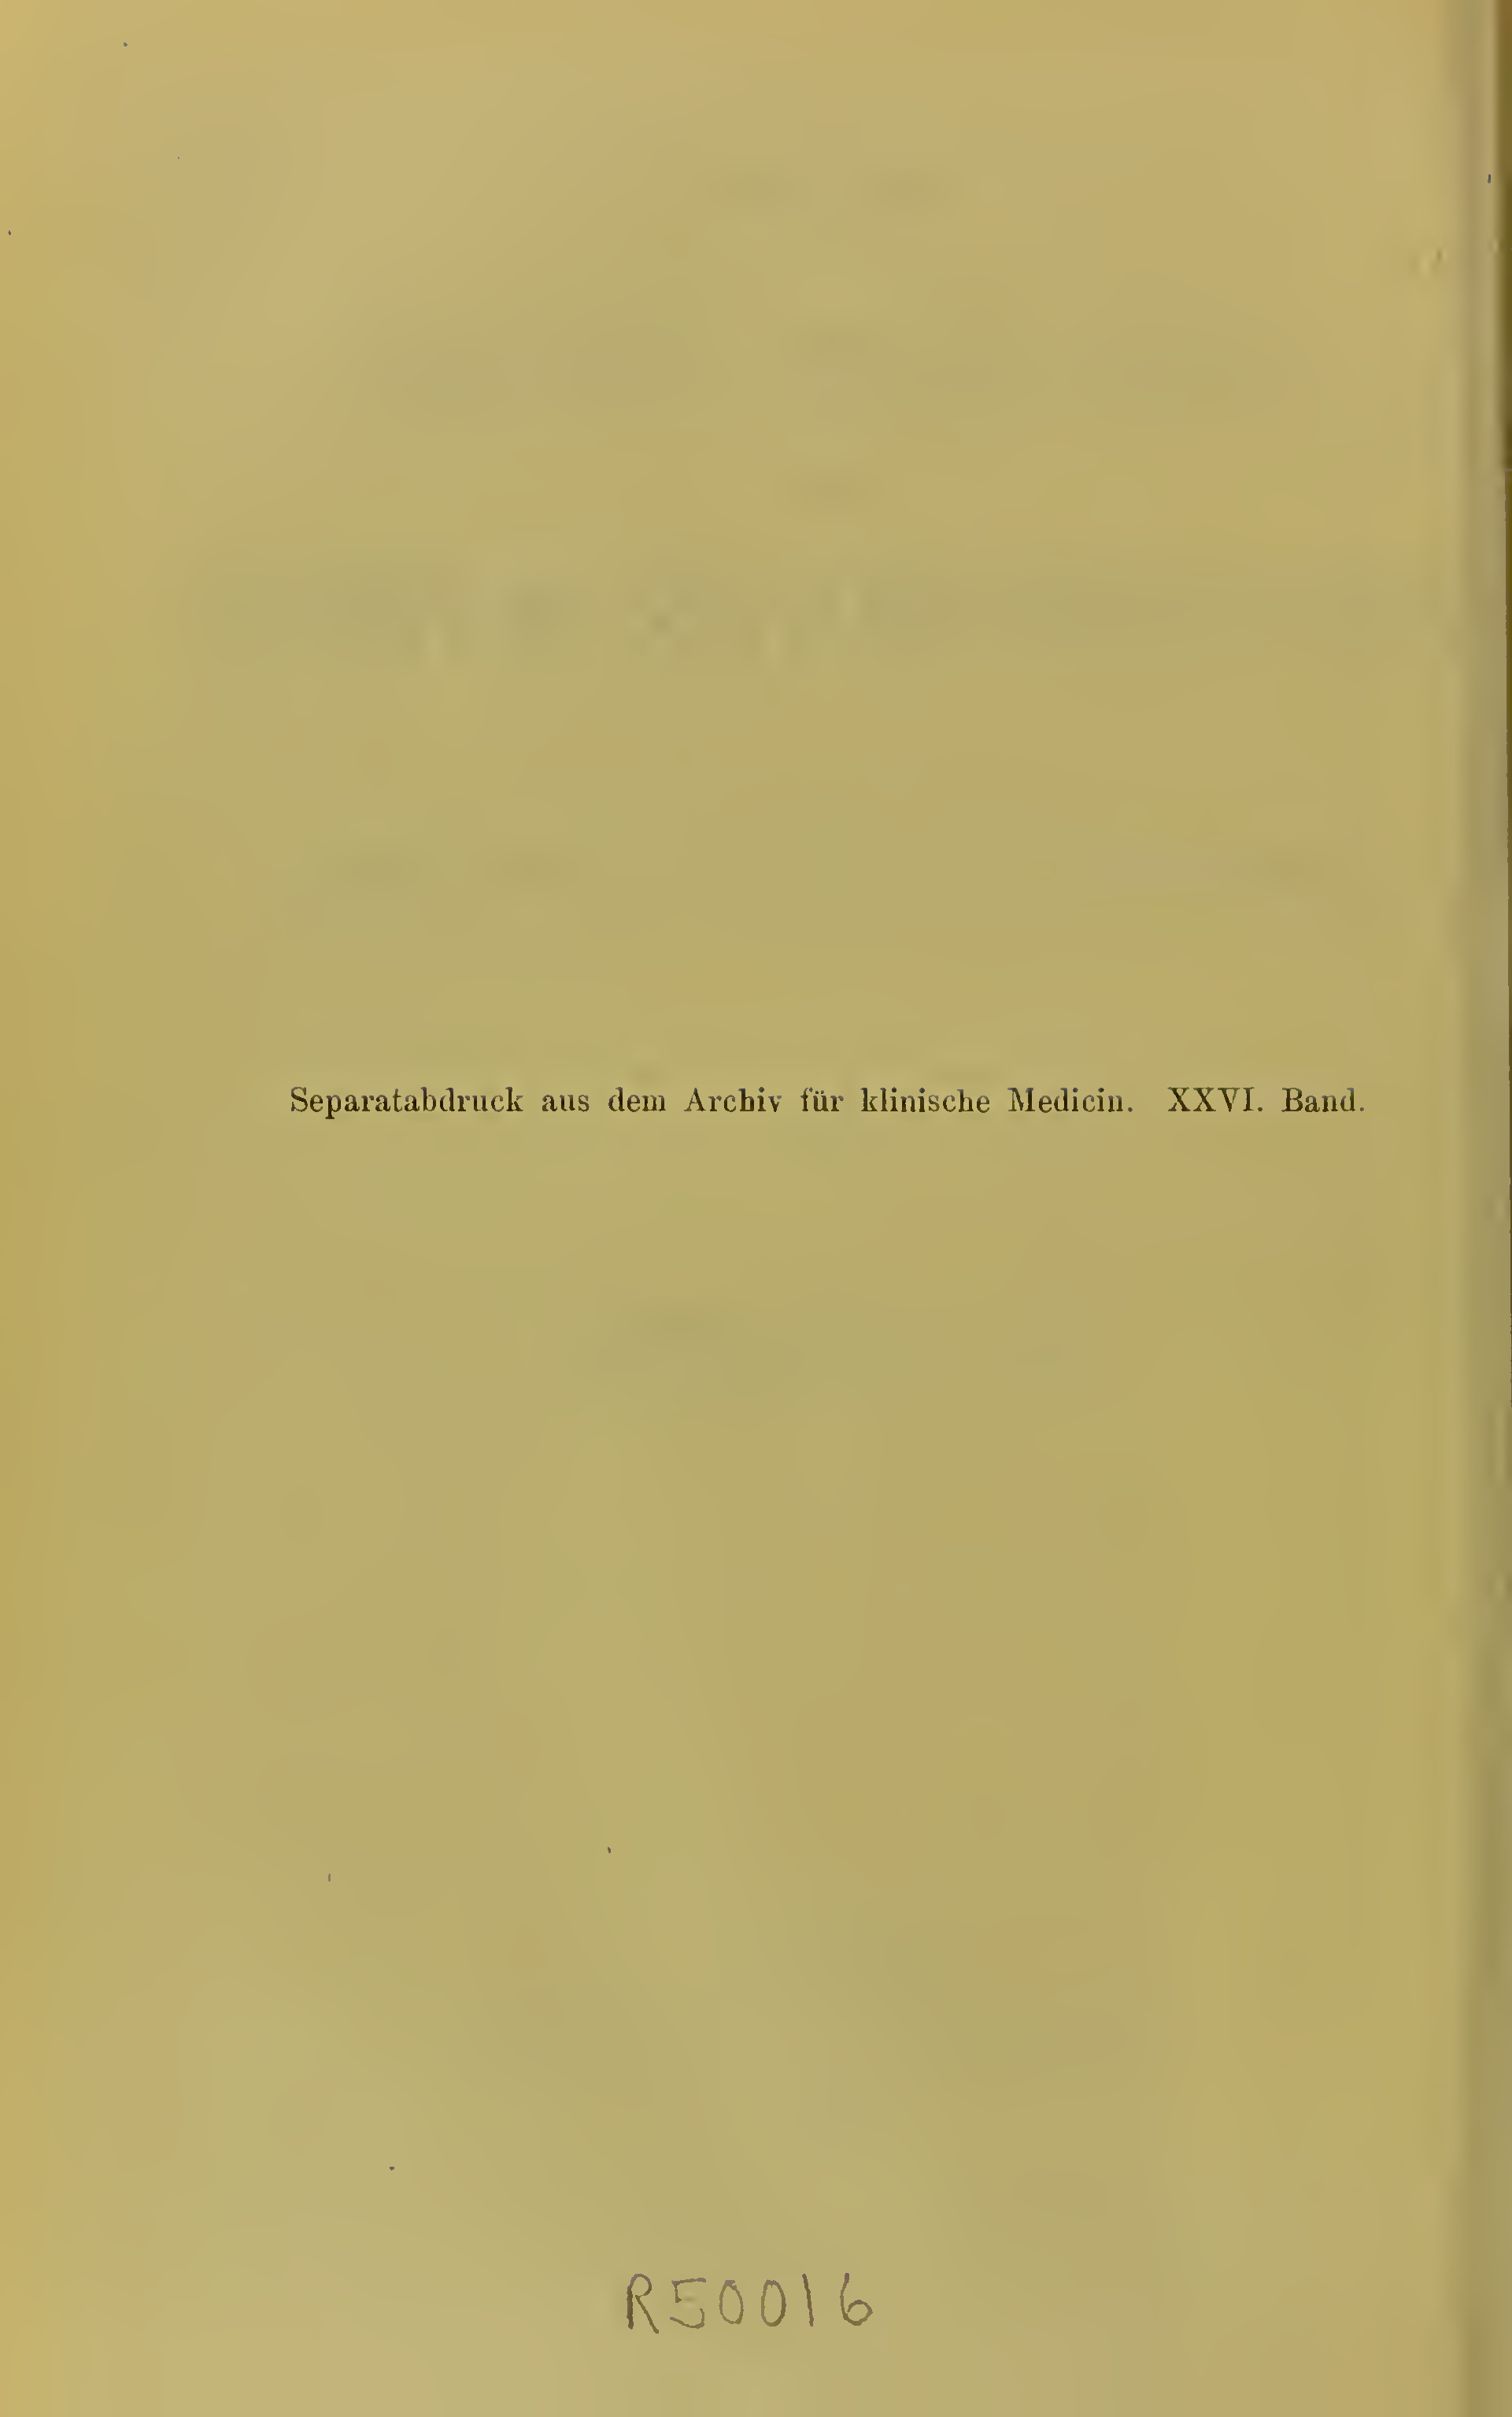 Separatabdruck aus dem Archiv für klinische Medicin. XXVI. Band.
R50016